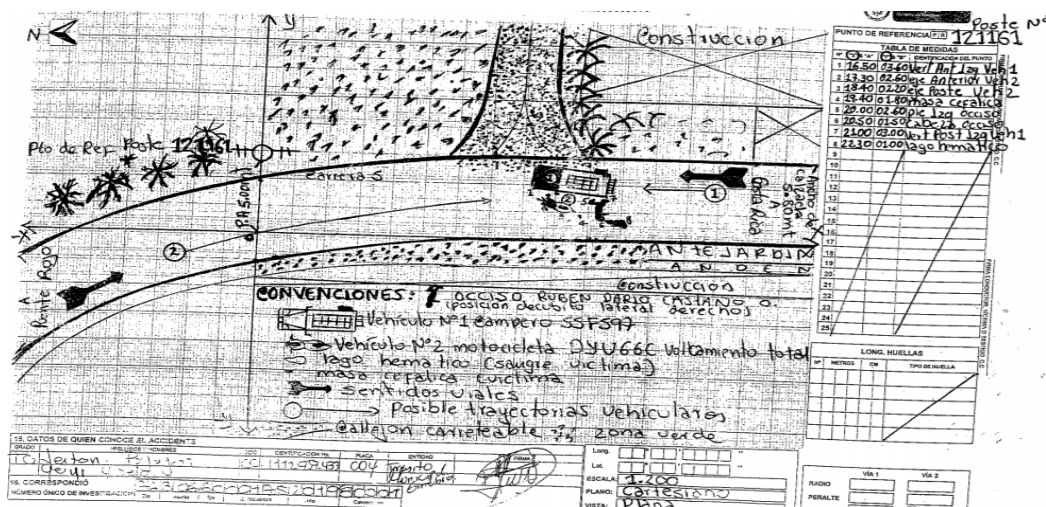 Poste Nº
PUNTO DE REFERENCIA P.R 121161
TABLA DE MEDIDAS
IDENTIFICACIÓN DEL PUNTO
1 16.50 03.60 Vert Ant Izq Veh 1
2 17.30 02.60 eje Anterior Veh 2
3 18.40 02.20 eje Poste Veh 2
4 19.40 01.80 masa cefalica
5 20.00 02.60 pie Izq occiso
6 20.50 01.50 cabeza occiso
7 21.00 03.00 Vert Post Izq Veh 1
8 22.30 01.00 lago hematico
9
10
11
12
13
14
15
16
17
18
19
20
21
22
23
24
25
N
Y
Construcción
Pto de Ref Poste 121161
Carrera 5
P.A 5.00mt
1
2
A
Costa Rica
Ancho de
calzada
5.80mt
X
2
A
Puente Rojo
ANTEJARDIN
ANDEN
Construcción
CONVENCIONES: OCCISO RUBEN DARIO CASTAÑO O.
(posición decubito lateral derecho)
Vehículo Nº1 campero SSF597
Vehículo Nº2 motocicleta DYU66C Volcamiento total
lago hematico (sangre victima)
masa cefalica (victima)
Sentidos viales
Posible trayectorias vehiculares
Callejon carreteable zona verde
LONG. HUELLAS
Nº METROS CM TIPO DE HUELLA
15. DATOS DE QUIEN CONOCE EL ACCIDENTE
GRADO APELLIDOS Y NOMBRES DOC IDENTIFICACIÓN No. PLACA ENTIDAD FIRMA
004 Transito
16. CORRESPONDIÓ
NÚMERO ÚNICO DE INVESTIGACIÓN
Long.
Lat.
ESCALA: 1.200
PLANO: Cartesiano
VISTA: Plana
VÍA 1 VÍA 2
RADIO
PERALTE